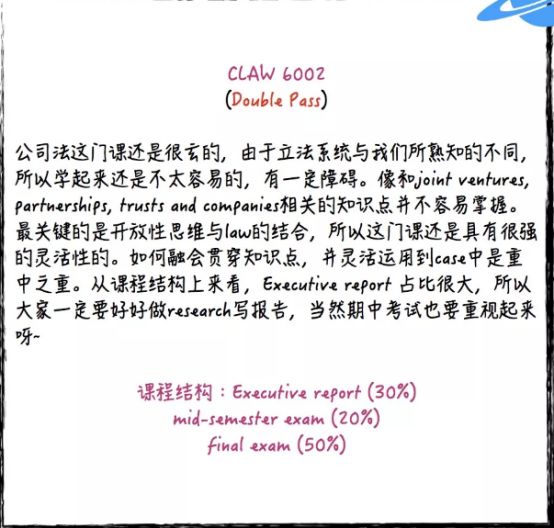 CLAW 6002
(Double Pass)
公司法这门课还是很玄的，由于立法系统与我们所熟知的不同，
所以学起来还是不太容易的，有一定障碍。像和joint ventures,
partnerships, trusts and companies相关的知识点并不容易掌握。
最关键的是开放性思维与law的结合，所以这门课还是具有很强
的灵活性的。如何融会贯穿知识点，并灵活运用到case中是重
中之重。从课程结构上来看，Executive report 占比很大，所以
大家一定要好好做research写报告，当然期中考试也要重视起来
呀~
课程结构：Executive report (30%)
mid-semester exam (20%)
final exam (50%)